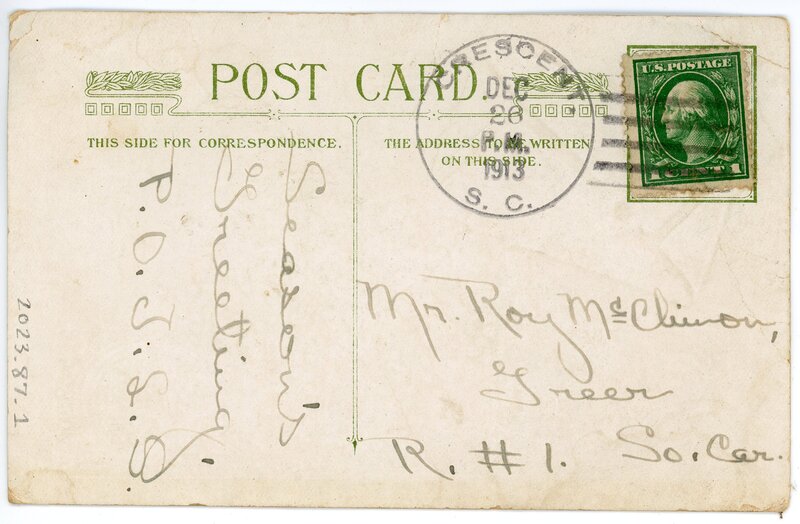 POST CARD.
THIS SIDE FOR CORRESPONDENCE.
THE ADDRESS TO BE WRITTEN
ON THIS SIDE.
CRESCENT,
DEC
26
P.M.
1913
S. C.
U.S. POSTAGE
1 CENT 1
Season's
Greeting.
P. O. J. S. S.
Mr. Roy McClimon,
Greer
R. #1. So. Car.
2023.87.1